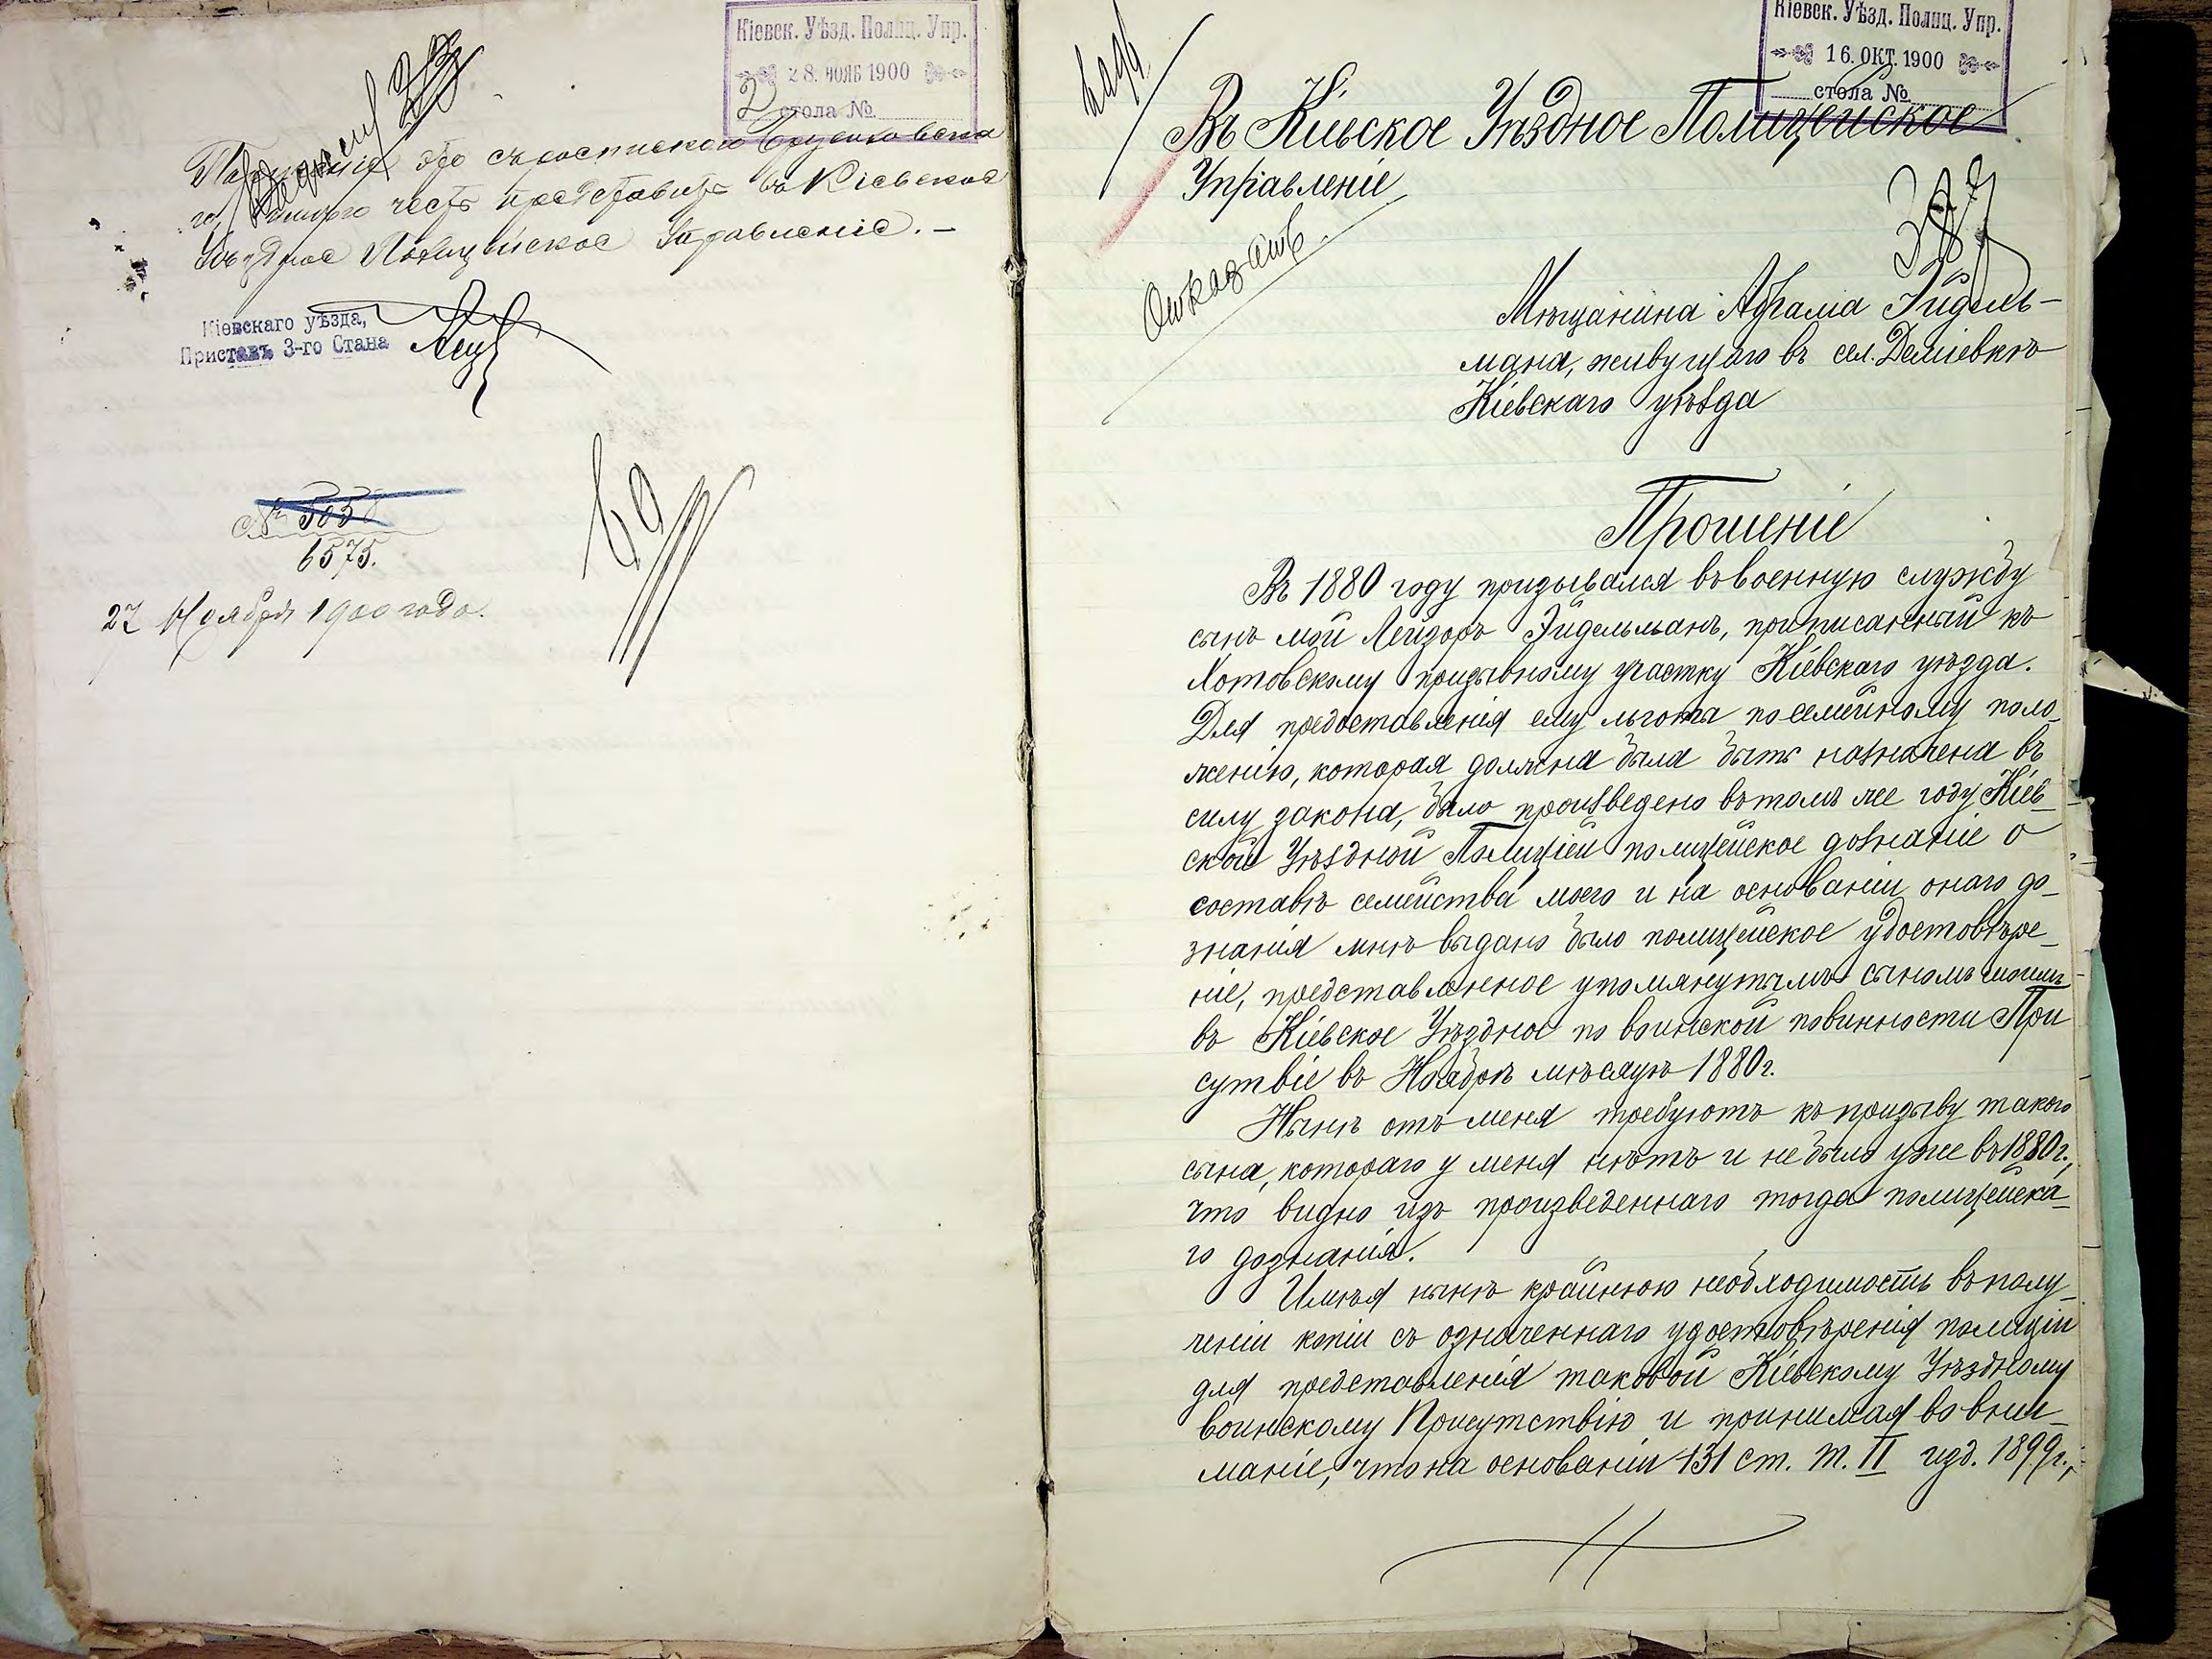 Кіевск. Уѣзд. Полиц. Упр.
28. НОЯБ 1900
2 стола №
съ роспискою
честь представить въ Кіевское
Уѣздное Полицейское Управленіе. —
Кіевскаго уѣзда,
Приставъ 3-го Стана
№ 5058
6575.
27 Ноября 1900 года.
Кіевск. Уѣзд. Полиц. Упр.
16. ОКТ. 1900
стола №
Въ Кіевское Уѣздное Полицейское
Управленіе
Отказать.
Мѣщанина Абрама Эйдель-
мана, живущаго въ сел. Деміевкѣ
Кіевскаго уѣзда
Прошеніе
Въ 1880 году призывался въ военную службу
сынъ мой Лейзоръ Эйдельманъ, приписанный къ
Хотовскому призывному участку Кіевскаго уѣзда.
Для предоставленія ему льготы по семейному поло-
женію, которая должна была быть назначена въ
силу закона, было произведено въ томъ же году Кіев-
ской Уѣздной Полиціей полицейское дознаніе о
составѣ семейства моего и на основаніи онаго до-
знанія мнѣ выдано было полицейское удостовѣре-
ніе, представленное упомянутымъ сыномъ моимъ
въ Кіевское Уѣздное по воинской повинности При
сутвіе въ Ноябрѣ мѣсяцѣ 1880 г.
Нынѣ отъ меня требуютъ къ призыву такого
сына, котораго у меня нѣтъ и не было уже въ 1880 г.,
что видно изъ произведеннаго тогда полицейска-
го дознанія.
Имѣя нынѣ крайнюю необходимость въ полу-
ченіи копіи съ означеннаго удостовѣренія полиціи
для представленія таковой Кіевскому Уѣздному
воинскому Присутствію и принимая во вни-
маніе, что на основаніи 131 ст. т. II изд. 1899 г.,